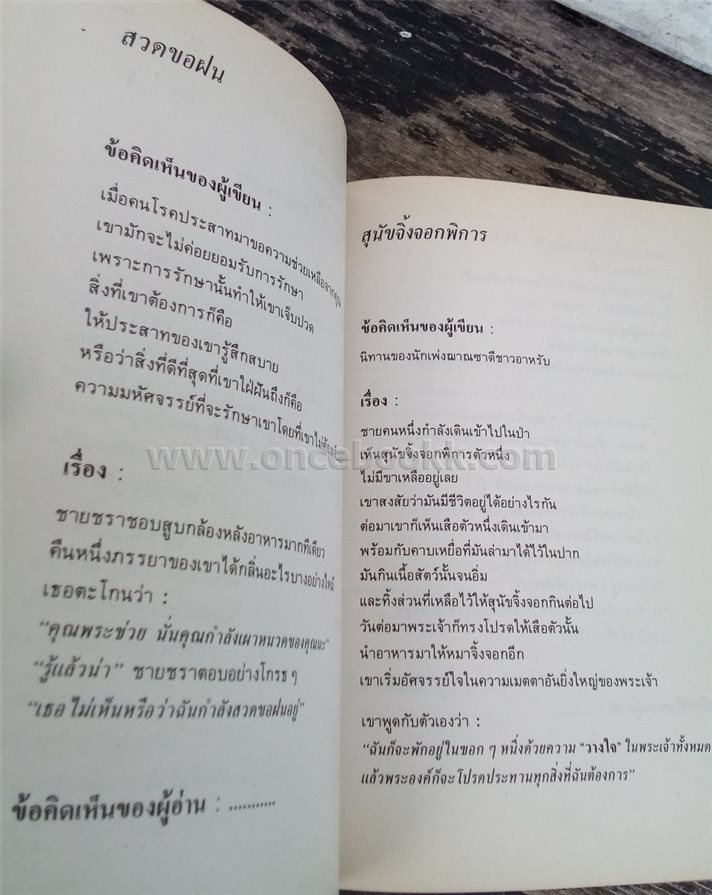 สวดขอฝน
ข้อคิดเห็นของผู้เขียน :
เมื่อคนโรคประสาทมาขอความช่วยเหลือจาก
เขามักจะไม่ค่อยยอมรับการรักษา
เพราะการรักษานั้นทำให้เขาเจ็บปวด
สิ่งที่เขาต้องการก็คือ
ให้ประสาทของเขารู้สึกสบาย
หรือว่าสิ่งที่ดีที่สุดที่เขาใฝ่ฝันถึงก็คือ
ความมหัศจรรย์ที่จะรักษาเขาโดยที่เขาไม่
เรื่อง :
ชายชราชอบสูบกล้องหลังอาหารมากทีเดียว
คืนหนึ่งภรรยาของเขาได้กลิ่นอะไรบางอย่างไหม้
เธอตะโกนว่า :
“คุณพระช่วย นั่นคุณกำลังเผาหนวดของคุณนะ”
“รู้แล้วน่า” ชายชราตอบอย่างโกรธ ๆ
“เธอไม่เห็นหรือว่าฉันกำลังสวดขอฝนอยู่”
ข้อคิดเห็นของผู้อ่าน : ...........
สุนัขจิ้งจอกพิการ
ข้อคิดเห็นของผู้เขียน :
นิทานของนักเพ่งฌาณซาดีชาวอาหรับ
เรื่อง :
ชายคนหนึ่งกำลังเดินเข้าไปในป่า
เห็นสุนัขจิ้งจอกพิการตัวหนึ่ง
ไม่มีขาเหลืออยู่เลย
เขาสงสัยว่ามันมีชีวิตอยู่ได้อย่างไรกัน
ต่อมาเขาก็เห็นเสือตัวหนึ่งเดินเข้ามา
พร้อมกับคาบเหยื่อที่มันล่ามาได้ไว้ในปาก
มันกินเนื้อสัตว์นั้นจนอิ่ม
และทิ้งส่วนที่เหลือไว้ให้สุนัขจิ้งจอกกินต่อไป
วันต่อมาพระเจ้าก็ทรงโปรดให้เสือตัวนั้น
นำอาหารมาให้หมาจิ้งจอกอีก
เขาเริ่มอัศจรรย์ใจในความเมตตาอันยิ่งใหญ่ของพระเจ้า
เขาพูดกับตัวเองว่า :
“ฉันก็จะพักอยู่ในซอก ๆ หนึ่งด้วยความ “วางใจ” ในพระเจ้าทั้งหมด
แล้วพระองค์ก็จะโปรดประทานทุกสิ่งที่ฉันต้องการ”
www.oncebookk.com